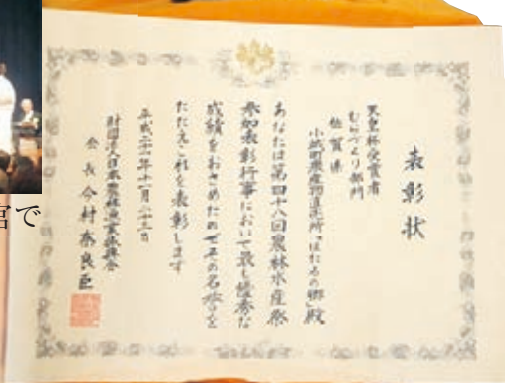 表彰状
天皇杯受賞者
むらづくり部門
佐賀県
小城町農産物直売所「ほたるの郷」殿
あなたは第四十八回農林水産祭
参加表彰行事において最も優秀な
成績をおさめたのでその名誉を
たたえこれを表彰します
平成二十一年十一月二十三日
財団法人日本農林漁業振興会
会長 今村奈良臣
宮で